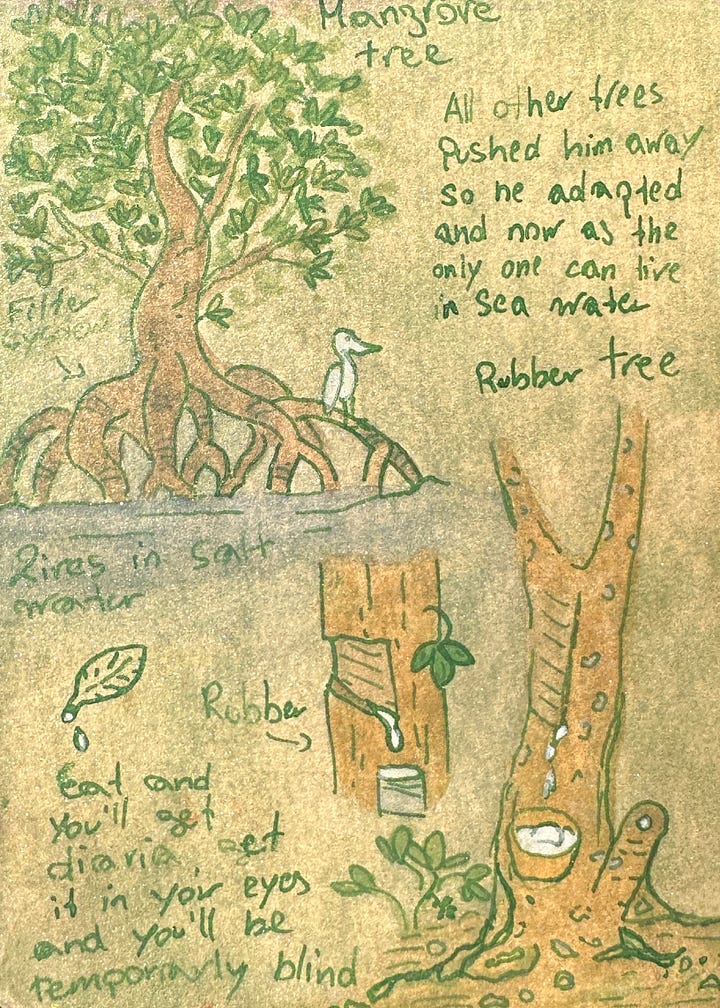 Mangrove
tree
All other trees
pushed him away
so he adapted
and now as the
only one can live
in sea water
Filter
system
Rubber tree
Lives in salt
Rubber
Eat and
You'll get
diaria, get
it in your eyes
and you'll be
temporarly blind